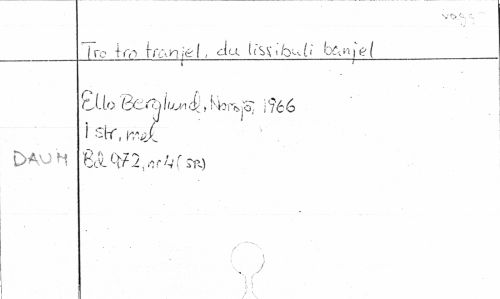 vagg-
Tro tro tranjel, du lissibuli banjel
Ella Berglund, Norsjö, 1966
1 str, mel
DAUM Bd 972, nr 4 (SR)